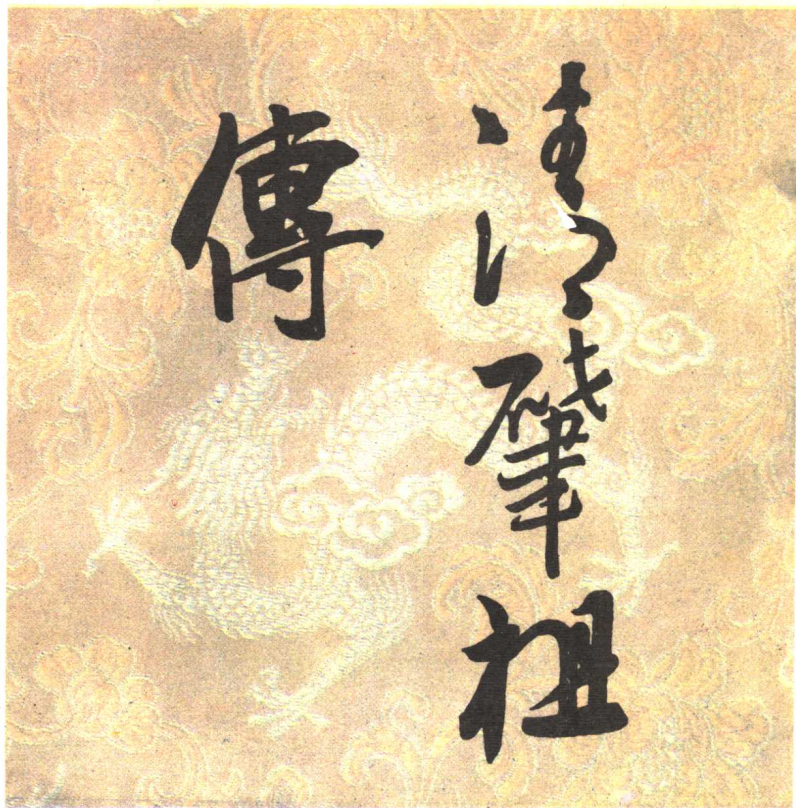 清肇祖
傳